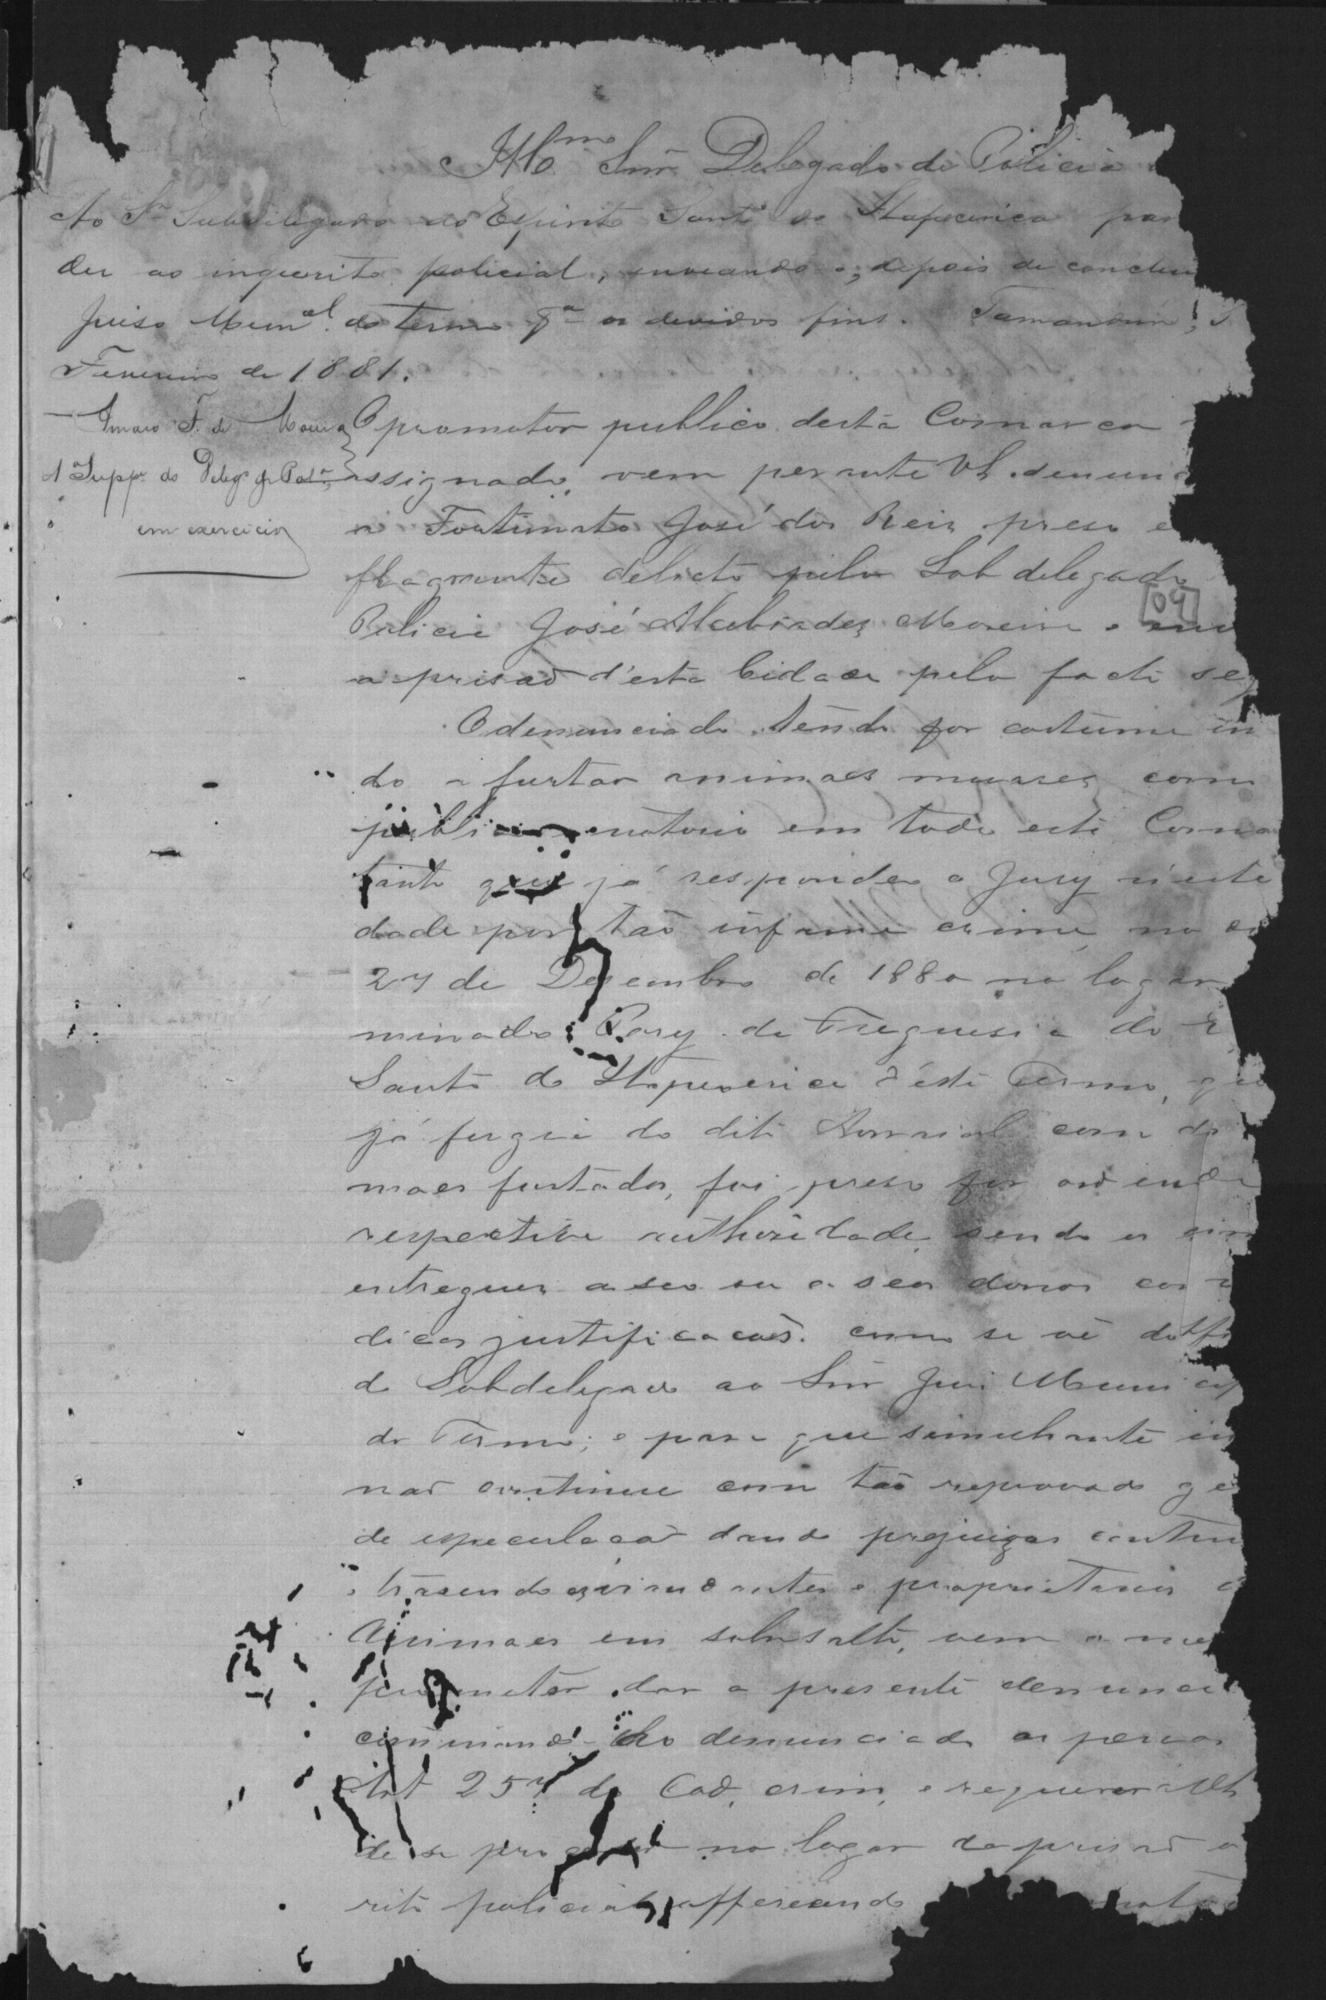 Illmo Snr Delegado de Policia
Ao Sr Subdelegado do Espirito Santo de Itapecerica par
der ao inquerito policial, enviando-o, depois de conclu
Juiso Munal do termo pa os devidos fins. Tamanduá,
Fevereiro de 1881.
Amaro F. de Moura
1o Suppe do Delego de Pola
em exercicio
O promotor publico desta Comarca
assignado, vem perante VS. denunc
a Fortunato José dos Reis preso e
flagrante delicto pelo Sobdelegado
Policia José Alcebiades Moreira e
[09]
a prisaõ d'esta Cidade pelo facto se
O denunciado tendo por costume
do a furtar animaes muares como
publico e notorio em todo este Coma
tanto que já respondeo o Jury n'esta
dade por taõ infame crime, no
27 de Desembro de 1880 no logar
minado Pary da Freguesia do E
Santo de Itapecerica d'este Termo, que
já fugia do dito Arraial com do
maes furtados, foi preso por ordem d
respectiva authoridade, sendo os
entregues a seo ou a seos donos com
dicas justificacoēs. como se vê do off
do Sobdelegado ao Snr Juiz Municip
do Termo; e para que similhante in
naõ continue com taõ reprovado ge
de especulacaõ dando prejuizos contin
e trasendo os viandantes e proprietarios d
Animaes em sobresalto, vem o mes
promotor dar a presente denuncia
criminando ao denunciado as penas
Art 257 do Cod. crim. e requerer a VS
de se proceder no logar da prisaõ o
rito policial, offerecendo